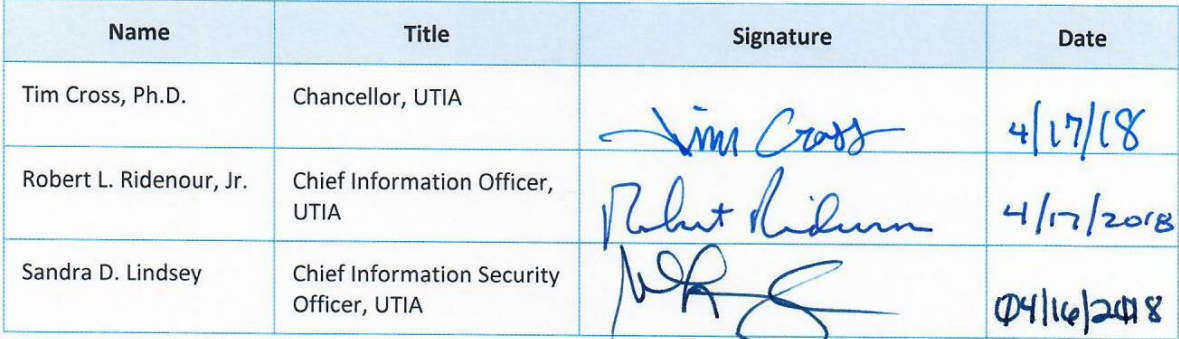 Name Title Signature Date
Tim Cross, Ph.D. Chancellor, UTIA Tim Cross 4/17/18
Robert L. Ridenour, Jr. Chief Information Officer, UTIA Robert Ridenour 4/17/2018
Sandra D. Lindsey Chief Information Security Officer, UTIA 04/16/2018